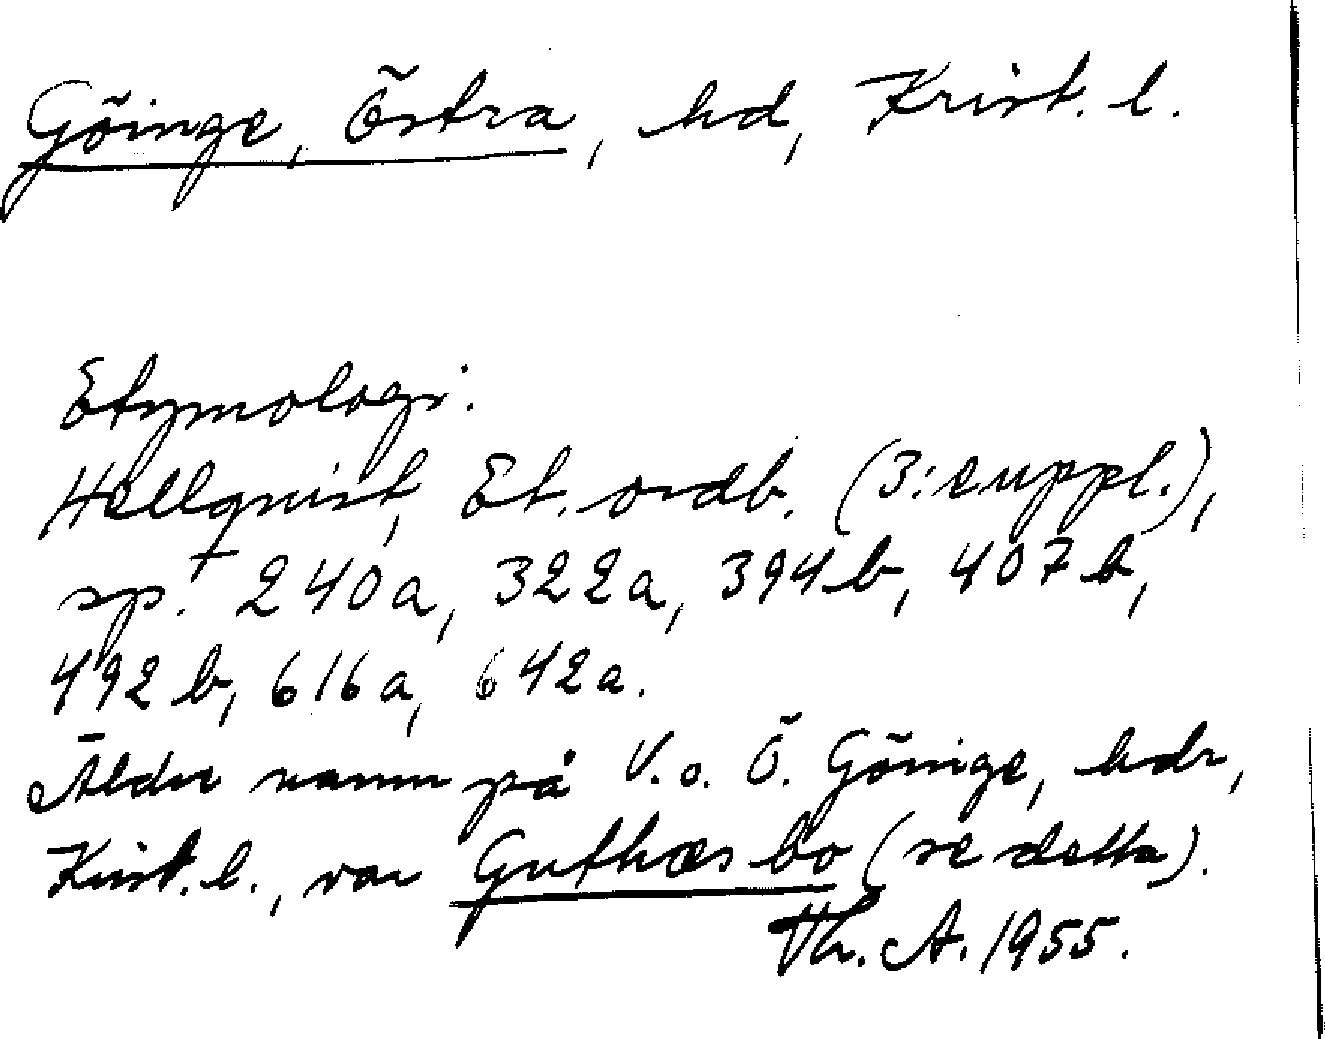 Göinge, Östra, hd, Krist. l.
Etymologi.
Hellquist, Et. ordb. (3:e uppl.),
sp. 240a, 322a, 394b, 407b,
492b, 616a, 642a.
Äldre namn på V. o. Ö. Göinge, hdr,
Krist. l., var Guthæsbo (se detta).
Th. A. 1955.